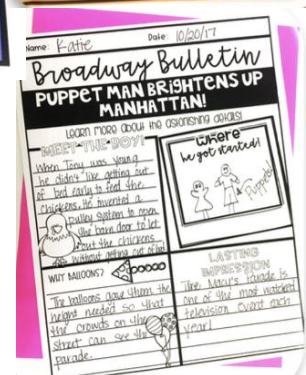 Name: Katie
Date: 10/20/17
Broadway Bulletin
PUPPET MAN BRIGHTENS UP
MANHATTAN!
Learn more about the astonishing details!
MEET THE BOY!
When Tony was young
he didn't like getting out
of bed early to feed the
chickens. He invented a
pulley system to open
the barn door to let
out the chickens
without getting out of bed
where
he got started!
Puppets
WHY BALLOONS?
The balloons gave them the
height needed so that
the crowds on the
street can see the
parade.
LASTING
IMPRESSION
The Macy's Parade is
one of the most watched
television event each
year!